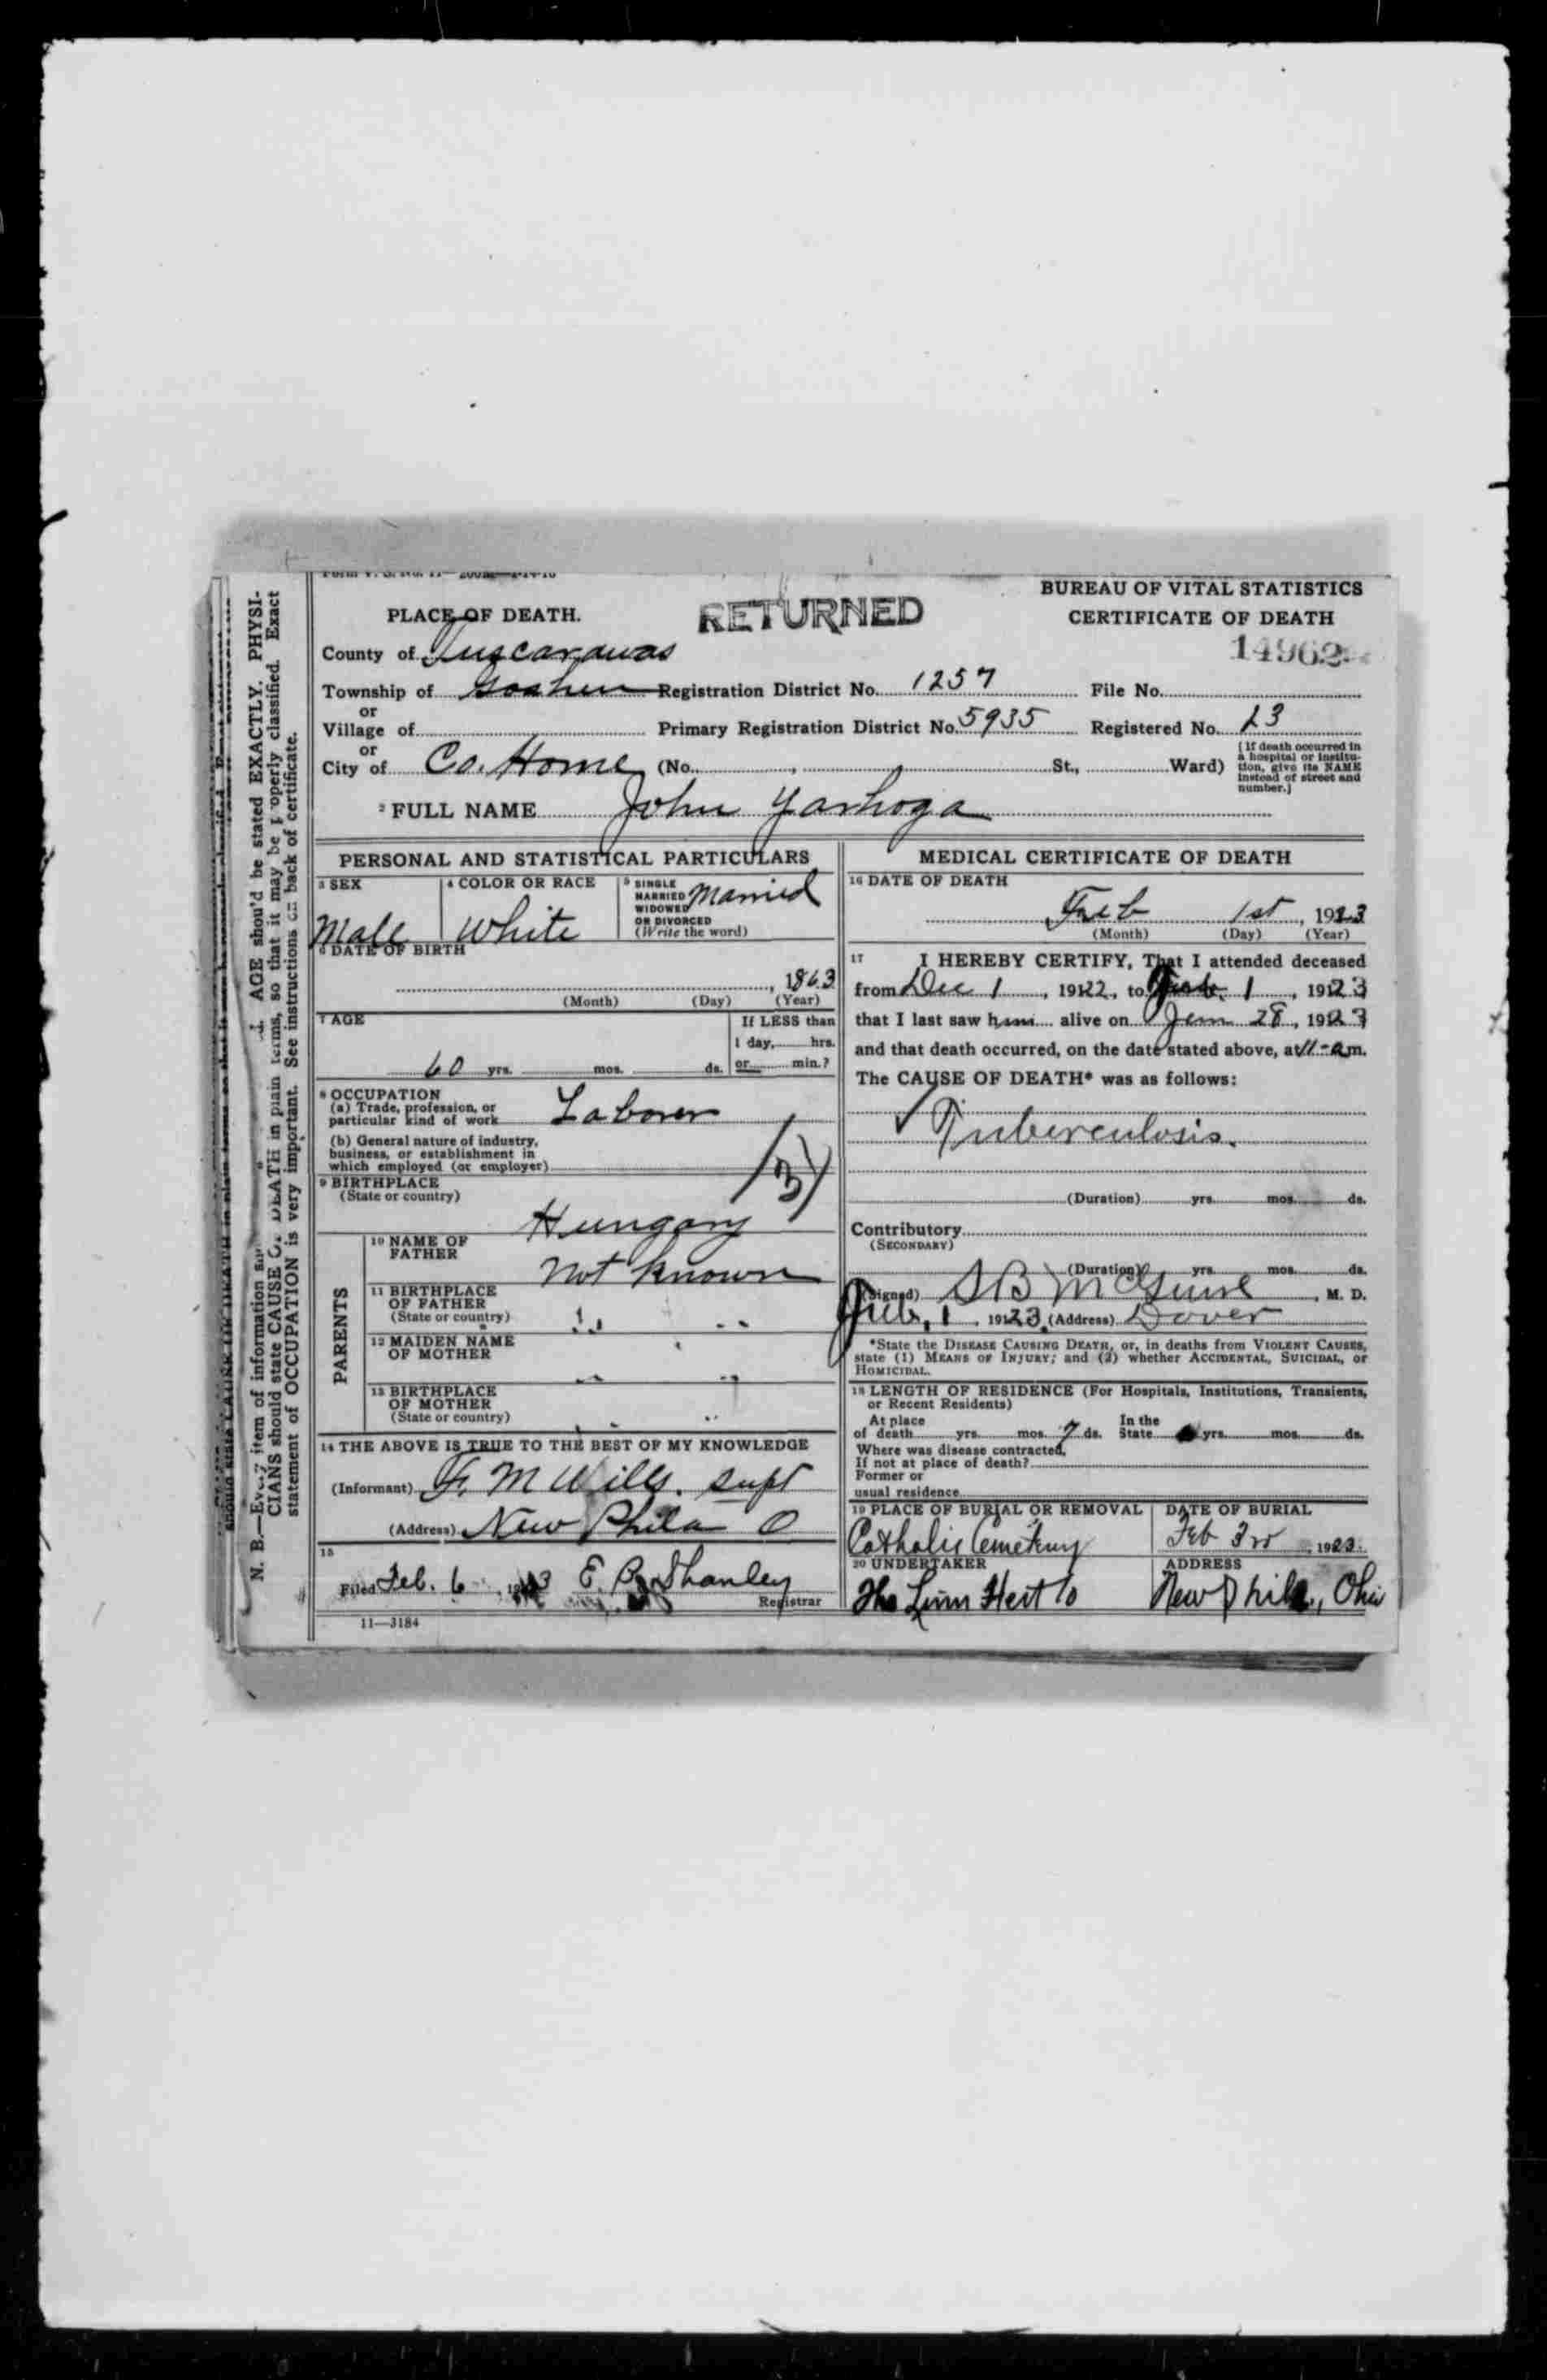 BUREAU OF VITAL STATISTICS
PLACE OF DEATH. RETURNED CERTIFICATE OF DEATH
14962
County of Tuscarawas
Township of Goshen Registration District No. 1257 File No.
or
Village of Primary Registration District No. 5935 Registered No. 13
or
City of Co. Home (No. , St., Ward) (If death occurred in a hospital or institution, give its NAME instead of street and number.)
2 FULL NAME John Yashoga
PERSONAL AND STATISTICAL PARTICULARS
3 SEX Male
4 COLOR OR RACE White
5 SINGLE MARRIED WIDOWED OR DIVORCED (Write the word) Married
6 DATE OF BIRTH
, 1863
(Month) (Day) (Year)
7 AGE
60 yrs. mos. ds.
If LESS than
1 day, hrs.
or min.?
8 OCCUPATION
(a) Trade, profession, or
particular kind of work Laborer
(b) General nature of industry,
business, or establishment in
which employed (or employer)
9 BIRTHPLACE
(State or country)
Hungary
PARENTS
10 NAME OF
FATHER
Not Known
11 BIRTHPLACE
OF FATHER
(State or country) " "
12 MAIDEN NAME
OF MOTHER
" "
13 BIRTHPLACE
OF MOTHER
(State or country) " "
14 THE ABOVE IS TRUE TO THE BEST OF MY KNOWLEDGE
(Informant) F. M Wills. Supt
(Address) New Phila O
15
Filed Feb. 6 E. B. Shanley
Registrar
11—3184
MEDICAL CERTIFICATE OF DEATH
16 DATE OF DEATH
Feb 1st, 1923
(Month) (Day) (Year)
17 I HEREBY CERTIFY, That I attended deceased
from Dec 1, 1922, to Feb. 1, 1923
that I last saw him alive on Jan 28, 1923
and that death occurred, on the date stated above, at 11-a m.
The CAUSE OF DEATH* was as follows:
Tuberculosis.
(Duration) yrs. mos. ds.
Contributory
(SECONDARY)
(Duration) yrs. mos. ds.
(Signed) S B McGuire, M. D.
Feb, 1 1923 (Address) Dover
*State the DISEASE CAUSING DEATH, or, in deaths from VIOLENT CAUSES,
state (1) MEANS OF INJURY; and (2) whether ACCIDENTAL, SUICIDAL, or
HOMICIDAL.
18 LENGTH OF RESIDENCE (For Hospitals, Institutions, Transients,
or Recent Residents)
At place In the
of death yrs. mos. 7 ds. State yrs. mos. ds.
Where was disease contracted,
If not at place of death?
Former or
usual residence
19 PLACE OF BURIAL OR REMOVAL DATE OF BURIAL
Catholic Cemetery Feb 3rd 1923
20 UNDERTAKER ADDRESS
The Linn Hert Co New Phila., Ohio
N. B.—Every item of information AGE should be stated EXACTLY. PHYSI-
CIANS should state CAUSE OF DEATH in plain terms, so that it may be properly classified. Exact
statement of OCCUPATION is very important. See instructions on back of certificate.